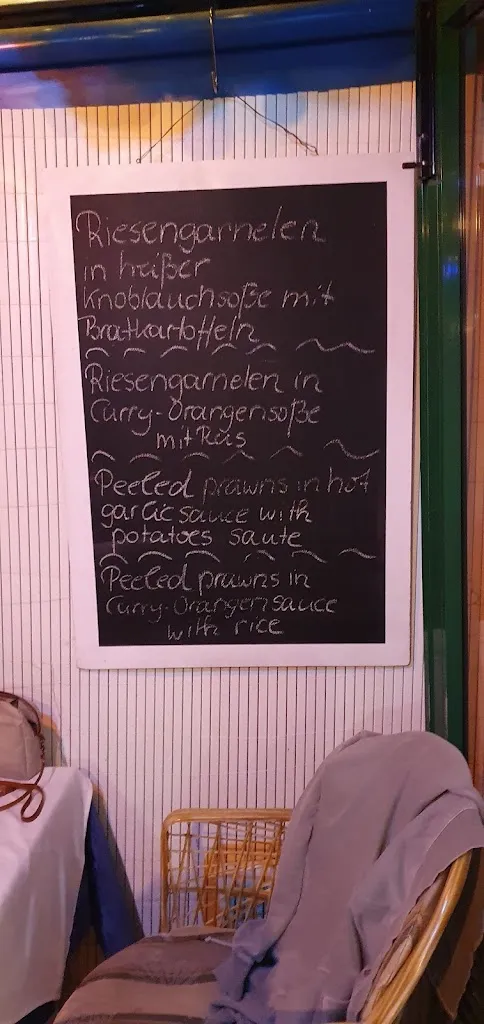 Riesengarnelen
in heißer
Knoblauchsoße mit
Bratkartoffeln
Riesengarnelen in
Curry-Orangensoße
mit Reis
Peeled prawns in hot
garlic sauce with
potatoes saute
Peeled prawns in
Curry-Orangensauce
with rice